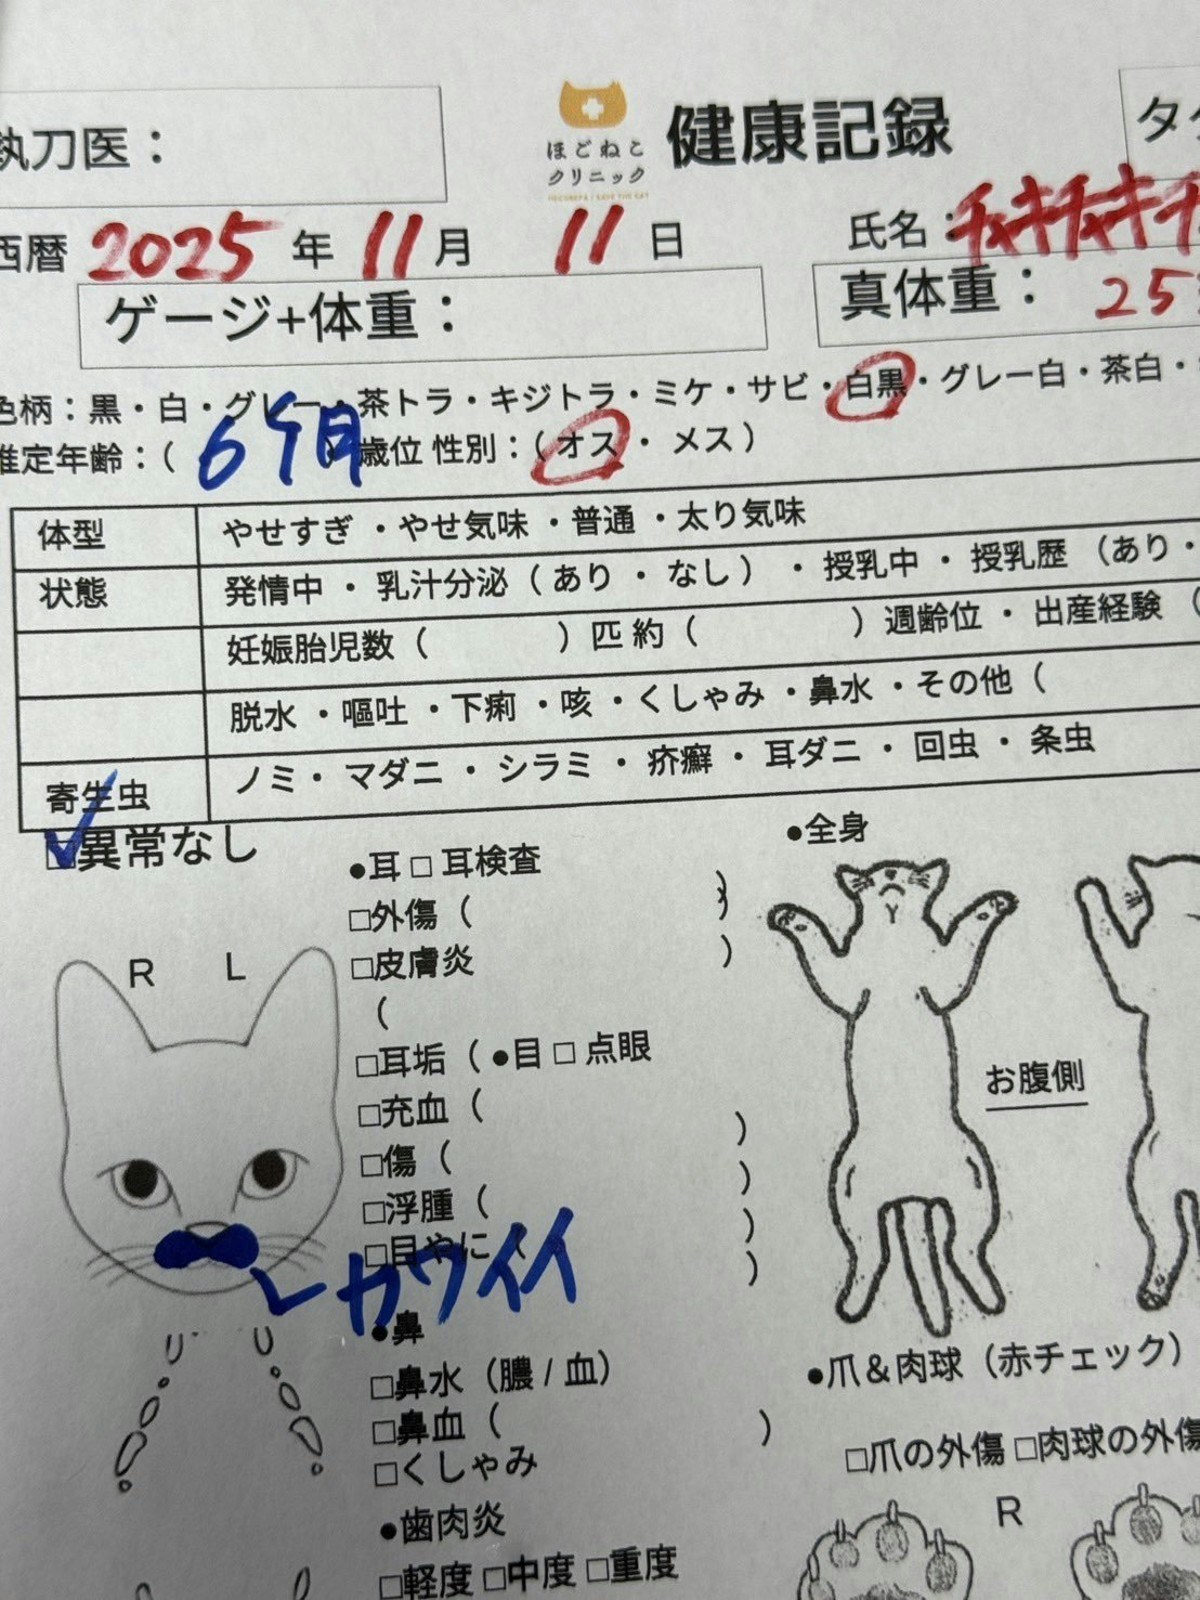 執刀医：
ほごねこ
クリニック
健康記録
西暦 2025 年 11 月 11 日
氏名：チャキチャキチ
ゲージ+体重：
真体重： 25
色柄：黒・白・グレー・茶トラ・キジトラ・ミケ・サビ・白黒・グレー白・茶白・
推定年齢：（ 6ヶ月 歳位 性別：（ オス ・ メス ）
体型 やせすぎ ・やせ気味 ・普通 ・太り気味
状態 発情中 ・ 乳汁分泌 （ あり ・ なし ） ・ 授乳中 ・ 授乳歴 （あり・
妊娠胎児数（ ）匹 約（ ）週齢位 ・ 出産経験 （
脱水 ・嘔吐 ・下痢 ・咳 ・くしゃみ ・鼻水 ・その他（
寄生虫 ノミ・ マダニ ・ シラミ ・ 疥癬 ・ 耳ダニ ・ 回虫 ・ 条虫
☑異常なし
R L
●耳 □ 耳検査
□外傷（ ）
□皮膚炎 ）
（
□耳垢（ ●目 □ 点眼
□充血（ ）
□傷（ ）
□浮腫（ ）
□目やに（ ）
カワイイ
●鼻
□鼻水（膿 / 血）
□鼻血（ ）
□くしゃみ
●歯肉炎
□軽度 □中度 □重度
●全身
お腹側
●爪＆肉球（赤チェック）
□爪の外傷 □肉球の外傷
R